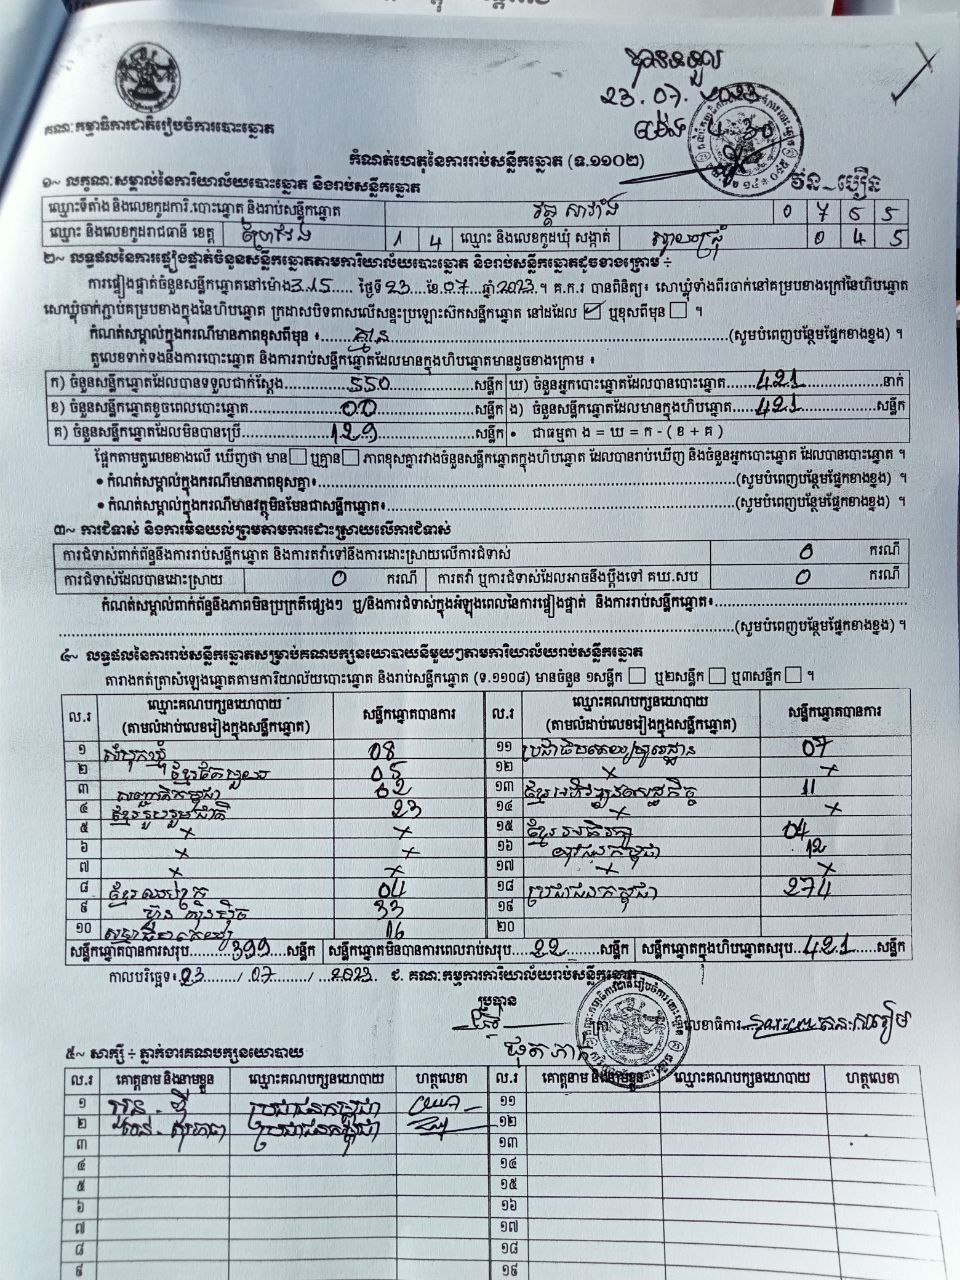 បានទទួល
23.07.2023
ម៉ោង 4 30
គណៈកម្មាធិការជាតិរៀបចំការបោះឆ្នោត
កំណត់ហេតុនៃការរាប់សន្លឹកឆ្នោត (ទ.១១០២)
១~ លក្ខណៈសម្គាល់នៃការិយាល័យបោះឆ្នោត និងរាប់សន្លឹកឆ្នោត
ឈ្មោះទីតាំង និងលេខកូដការិ.បោះឆ្នោត និងរាប់សន្លឹកឆ្នោត វត្ត សាវ៉ាង 0 7 6 5
ឈ្មោះ និងលេខកូដរាជធានី ខេត្ត ព្រៃវែង 1 4 ឈ្មោះ និងលេខកូដឃុំ សង្កាត់ ស្វាយជ្រុំ 0 4 5
២~ លទ្ធផលនៃការផ្ទៀងផ្ទាត់ចំនួនសន្លឹកឆ្នោតតាមការិយាល័យបោះឆ្នោត និងរាប់សន្លឹកឆ្នោតដូចខាងក្រោម ÷
ការផ្ទៀងផ្ទាត់ចំនួនសន្លឹកឆ្នោតនៅម៉ោង3.15..... ថ្ងៃទី23....ខែ.07...ឆ្នាំ2023.។ គ.ក.រ បានពិនិត្យ៖ សោឃ្លុំទាំងពីរចាក់នៅគម្របខាងក្រៅនៃហិបឆ្នោត
សោឃ្លុំចាក់ភ្ជាប់គម្របខាងក្នុងនៃហិបឆ្នោត ក្រដាសបិទពាសលើសន្ទះប្រឡោះស៊កសន្លឹកឆ្នោត នៅដដែល ☑ ឬខុសពីមុន ☐ ។
កំណត់សម្គាល់ក្នុងករណីមានភាពខុសពីមុន ៖......គ្មាន......(សូមបំពេញបន្ថែមផ្នែកខាងខ្នង) ។
តួលេខទាក់ទងនឹងការបោះឆ្នោត និងការរាប់សន្លឹកឆ្នោតដែលមានក្នុងហិបឆ្នោតមានដូចខាងក្រោម ៖
ក) ចំនួនសន្លឹកឆ្នោតដែលបានទទួលជាក់ស្តែង......550......សន្លឹក ឃ) ចំនួនអ្នកបោះឆ្នោតដែលបានបោះឆ្នោត......421......នាក់
ខ) ចំនួនសន្លឹកឆ្នោតខូចពេលបោះឆ្នោត......00......សន្លឹក ង) ចំនួនសន្លឹកឆ្នោតដែលមានក្នុងហិបឆ្នោត...421......សន្លឹក
គ) ចំនួនសន្លឹកឆ្នោតដែលមិនបានប្រើ......129......សន្លឹក • ជាធម្មតា ង = ឃ = ក - ( ខ + គ )
ផ្អែកតាមតួលេខខាងលើ ឃើញថា មាន☐ ឬគ្មាន☐ ភាពខុសគ្នារវាងចំនួនសន្លឹកឆ្នោតក្នុងហិបឆ្នោត ដែលបានរាប់ឃើញ និងចំនួនអ្នកបោះឆ្នោត ដែលបានបោះឆ្នោត ។
• កំណត់សម្គាល់ក្នុងករណីមានភាពខុសគ្នា៖......(សូមបំពេញបន្ថែមផ្នែកខាងខ្នង) ។
• កំណត់សម្គាល់ក្នុងករណីមានវត្ថុមិនមែនជាសន្លឹកឆ្នោត៖......(សូមបំពេញបន្ថែមផ្នែកខាងខ្នង) ។
៣~ ការជំទាស់ និងការមិនយល់ព្រមតាមការដោះស្រាយលើការជំទាស់
ការជំទាស់ពាក់ព័ន្ធនឹងការរាប់សន្លឹកឆ្នោត និងការតវ៉ាទៅនឹងការដោះស្រាយលើការជំទាស់ 0 ករណី
ការជំទាស់ដែលបានដោះស្រាយ 0 ករណី ការតវ៉ា ឬការជំទាស់ដែលអាចនឹងប្តឹងទៅ គឃ.សប 0 ករណី
កំណត់សម្គាល់ពាក់ព័ន្ធនឹងភាពមិនប្រក្រតីផ្សេងៗ ឬ/និងការជំទាស់ក្នុងអំឡុងពេលនៃការផ្ទៀងផ្ទាត់ និងការរាប់សន្លឹកឆ្នោត៖......
......(សូមបំពេញបន្ថែមផ្នែកខាងខ្នង) ។
៤~ លទ្ធផលនៃការរាប់សន្លឹកឆ្នោតសម្រាប់គណបក្សនយោបាយនីមួយៗតាមការិយាល័យរាប់សន្លឹកឆ្នោត
តារាងកត់ត្រាសំឡេងឆ្នោតតាមការិយាល័យបោះឆ្នោត និងរាប់សន្លឹកឆ្នោត (ទ.១១០៨) មានចំនួន ១សន្លឹក ☐ ឬ២សន្លឹក ☐ ឬ៣សន្លឹក ☐ ។
ល.រ ឈ្មោះគណបក្សនយោបាយ (តាមលំដាប់លេខរៀងក្នុងសន្លឹកឆ្នោត) សន្លឹកឆ្នោតបានការ ល.រ ឈ្មោះគណបក្សនយោបាយ (តាមលំដាប់លេខរៀងក្នុងសន្លឹកឆ្នោត) សន្លឹកឆ្នោតបានការ
១ សំបុកឃ្មុំ 08 ១១ ប្រជាធិបតេយ្យមូលដ្ឋាន 07
២ ខ្មែរតែមួយ 05 ១២ × ×
៣ សញ្ជាតិកម្ពុជា 02 ១៣ ខ្មែរអភិវឌ្ឍន៍សេដ្ឋកិច្ច 11
៤ ខ្មែររួបរួមជាតិ 23 ១៤ × ×
៥ × × ១៥ ខ្មែរអភិរក្ស 04
៦ × × ១៦ យុវជនកម្ពុជា 12
៧ × × ១៧ × ×
៨ 04 ១៨ ប្រជាជនកម្ពុជា 274
៩ ហ៊្វុនស៊ិនប៉ិច 33 ១៩
១០ 16 ២០
សន្លឹកឆ្នោតបានការសរុប......399......សន្លឹក សន្លឹកឆ្នោតមិនបានការពេលរាប់សរុប...22......សន្លឹក សន្លឹកឆ្នោតក្នុងហិបឆ្នោតសរុប..421......សន្លឹក
កាលបរិច្ឆេទ៖.23....../.07....../..2023. ជ. គណៈកម្មការការិយាល័យរាប់សន្លឹកឆ្នោត
ប្រធាន
លេខាធិការ
៥~ សាក្សី ÷ ភ្នាក់ងារគណបក្សនយោបាយ
ល.រ គោត្តនាម និងនាមខ្លួន ឈ្មោះគណបក្សនយោបាយ ហត្ថលេខា ល.រ គោត្តនាម និងនាមខ្លួន ឈ្មោះគណបក្សនយោបាយ ហត្ថលេខា
១ ប្រជាជនកម្ពុជា ១១
២ ប្រជាជនកម្ពុជា ១២
៣ ១៣
៤ ១៤
៥ ១៥
៦ ១៦
៧ ១៧
៨ ១៨
៩ ១៩